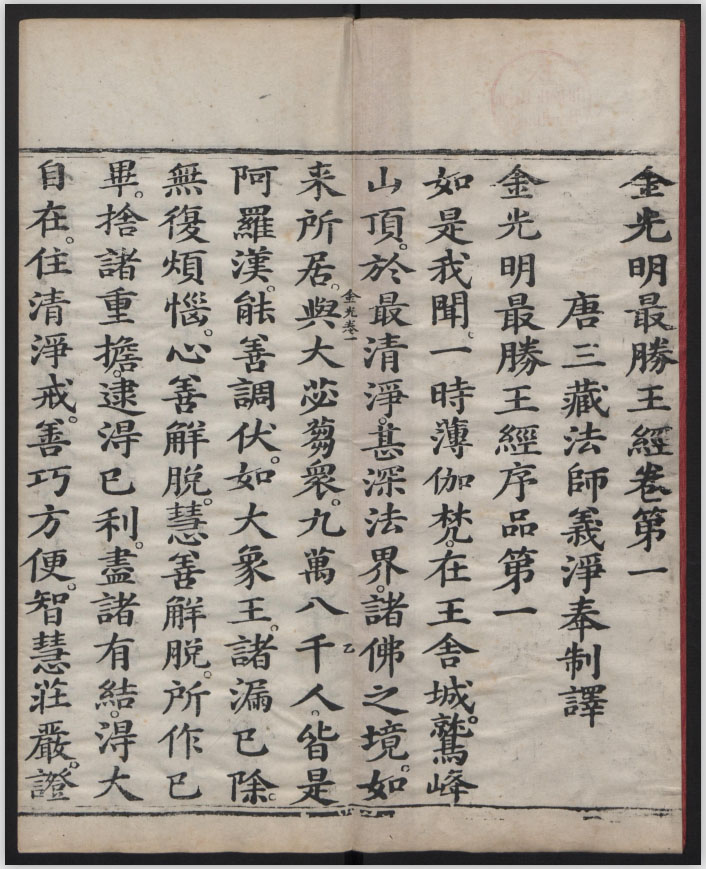 金光明最勝王經卷第一
唐三藏法師義淨奉制譯
金光明最勝王經序品第一
如是我聞一時薄伽梵。在王舍城。鷲峰
山頂。於最清淨。甚深法界。諸佛之境。如
金光卷一
乙
来所居。與大苾蒭眾。九萬八千人。皆是
阿羅漢。能善調伏。如大象王。諸漏已除。
無復煩惱。心善解脫。慧善解脫。所作已
畢。捨諸重擔。逮得已利。盡諸有結。得大
自在。住清淨戒。善巧方便。智慧莊嚴。證